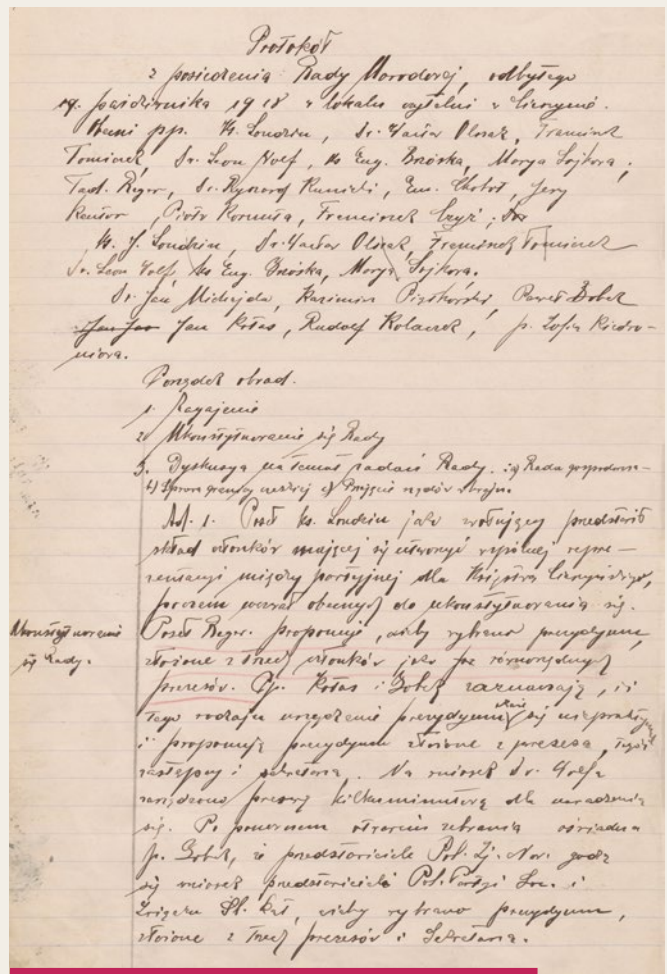 Protokół
z posiedzenia Rady Narodowej, odbytego
19. października 1918 w lokalu czytelni w Cieszynie.
Obecni pp. Ks. Londzin, Dr. Wacław Olszak, Franciszek
Tomiczek, Dr. Leon Wolf, ks Eug. Brzóska, Marya Sojkowa,
Tad. Reger, Dr. Ryszard Kunicki, Em. Chobot, Jerzy
Kantor, Piotr Kornuta, Franciszek Czyż;
Ks. J. Londzin, Dr. Wacław Olszak, Franciszek Tomiczek
Dr. Leon Wolf, ks Eug. Brzóska, Marya Sojkowa.
Dr. Jan Michejda, Kazimierz Piątkowski, Paweł Bobek
Jan Kotas, Rudolf Kolaczek, p. Zofia Kiedro-
niowa.
Porządek obrad.
1. Zagajenie
2. Ukonstytuowanie się Rady
3. Dyskusya na temat zadań Rady. Rada gospodarcza
b) Sprawa granicy c) Przejęcie rządów
Ad. 1. Poseł ks. Londzin jako zwołujący przedstawił
skład członków mającej się utworzyć wspólnej repre-
zentacyi między partyjnej dla Księstwa Cieszyńskiego,
poczem wezwał obecnych do ukonstytuowania się.
Ukonstytuowanie
się Rady.
Poseł Reger proponuje, ażeby wybrano prezydyum,
złożone z trzech członków jako równorzędnych
prezesów. Pp. Kotas i Bobek zaznaczają, iż
tego rodzaju urządzenie prezydyum się
i proponują prezydyum złożone z prezesa,
zastępcy i sekretarza. Na wniosek Dr. Wolfa
zarządzono przerwę kilkuminutową dla naradzenia
się. Po ponownem otwarciu zebrania oświadcza
p. Bobek, że przedstawiciele Pol. Zj. Nar. godzą
się wniosek przedstawicieli Pol. Partyi Soc. i
Związku Śl. Kat, ażeby wybrano prezydyum,
złożone z trzech prezesów i Sekretarza.